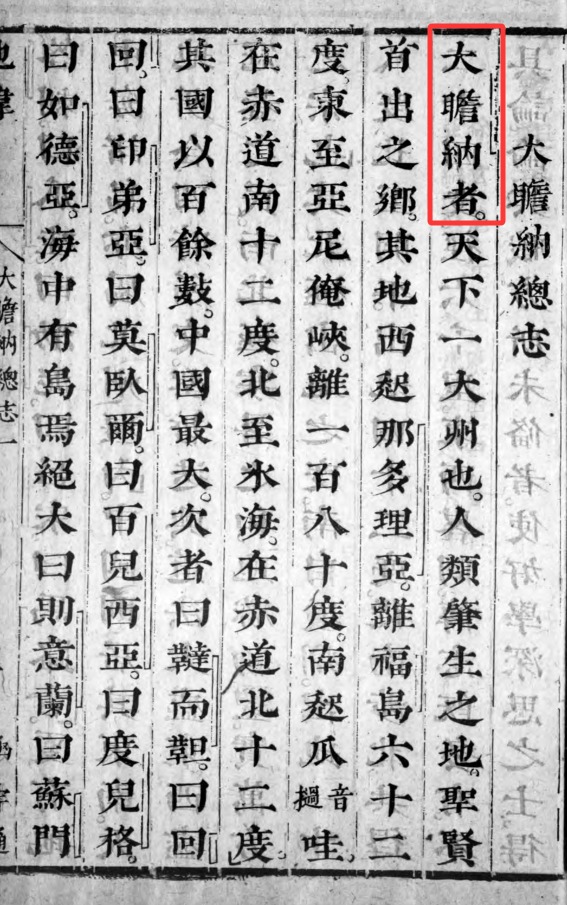 大瞻納總志
大瞻納者。天下一大州也。人類肇生之地。聖賢
首出之鄉。其地西起那多理亞。離福島六十二
度。東至亞尼俺峽。離一百八十度。南起瓜音撾哇。
在赤道南十二度。北至氷海。在赤道北十二度。
其國以百餘數。中國最大。次者曰韃而靼。曰回
回。曰印弟亞。曰莫臥爾。曰百兒西亞。曰度兒格。
曰如德亞。海中有島焉。絕大曰則意蘭。曰蘇門
大瞻納總志一